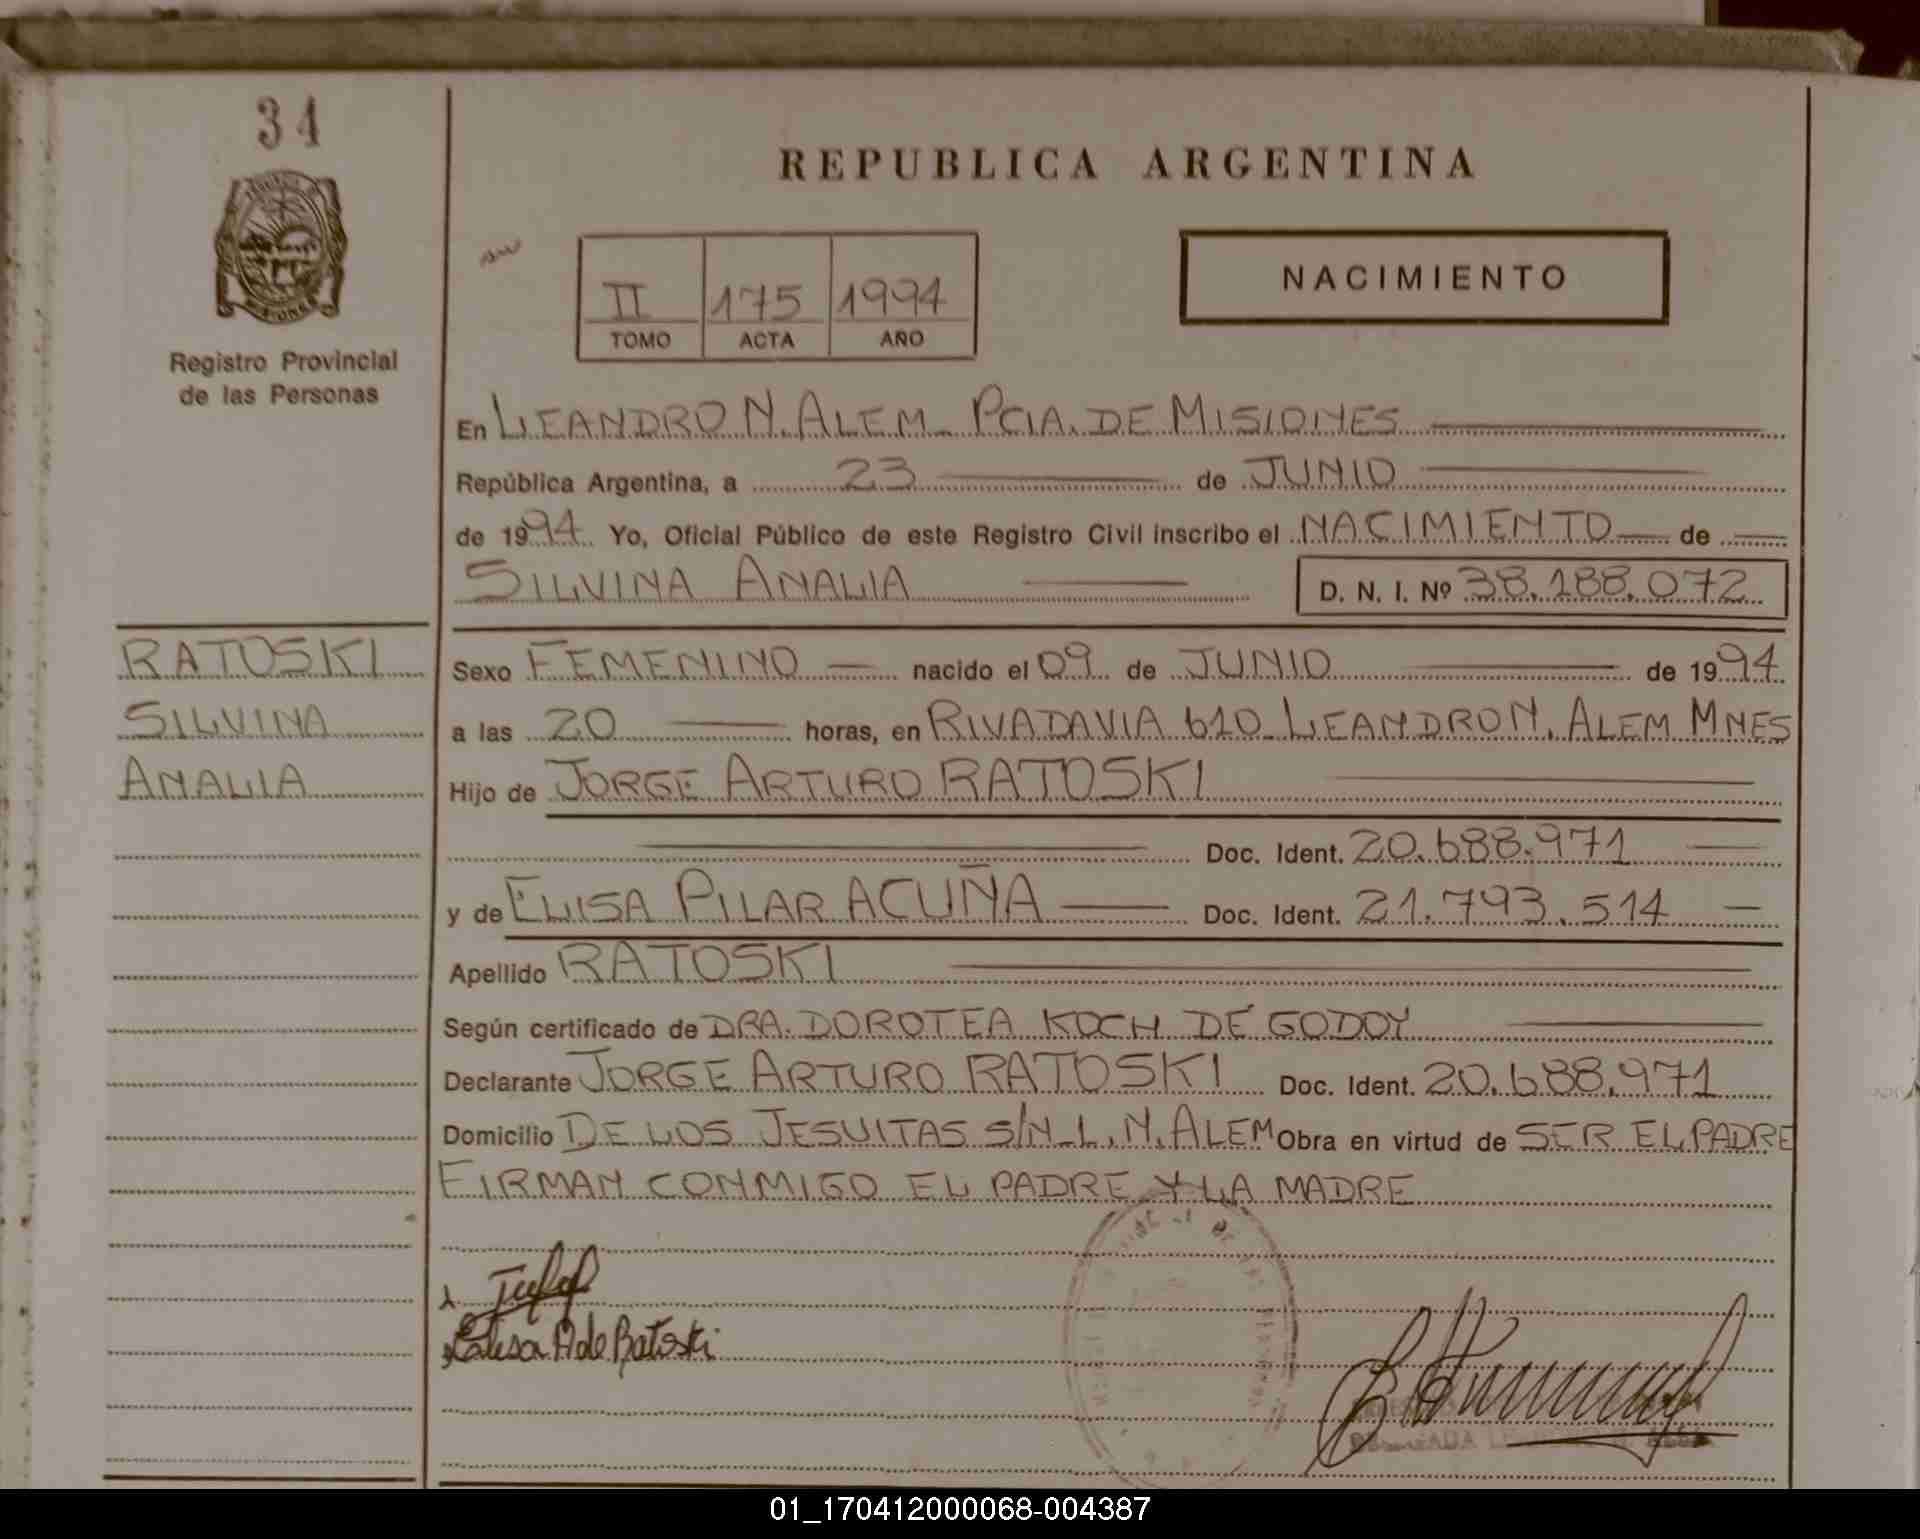 34
REPUBLICA ARGENTINA
II 175 1994
TOMO ACTA AÑO
NACIMIENTO
Registro Provincial
de las Personas
En LEANDRO N. ALEM PCIA. DE MISIONES
República Argentina, a 23 de JUNIO
de 1994 Yo, Oficial Público de este Registro Civil inscribo el NACIMIENTO de
SILVINA ANALIA D. N. I. Nº 38.188.072
RATOSKI
SILVINA
ANALIA
Sexo FEMENINO nacido el 09 de JUNIO de 1994
a las 20 horas, en RIVADAVIA 610 LEANDRO N. ALEM MNES
Hijo de JORGE ARTURO RATOSKI
Doc. Ident. 20.688.971
y de ELISA PILAR ACUÑA Doc. Ident. 21.793.514
Apellido RATOSKI
Según certificado de DRA. DOROTEA KOCH DE GODOY
Declarante JORGE ARTURO RATOSKI Doc. Ident. 20.688.971
Domicilio DE LOS JESUITAS S/N L. N. ALEM Obra en virtud de SER EL PADRE
FIRMAN CONMIGO EL PADRE Y LA MADRE
de Ratoski
01_170412000068-004387